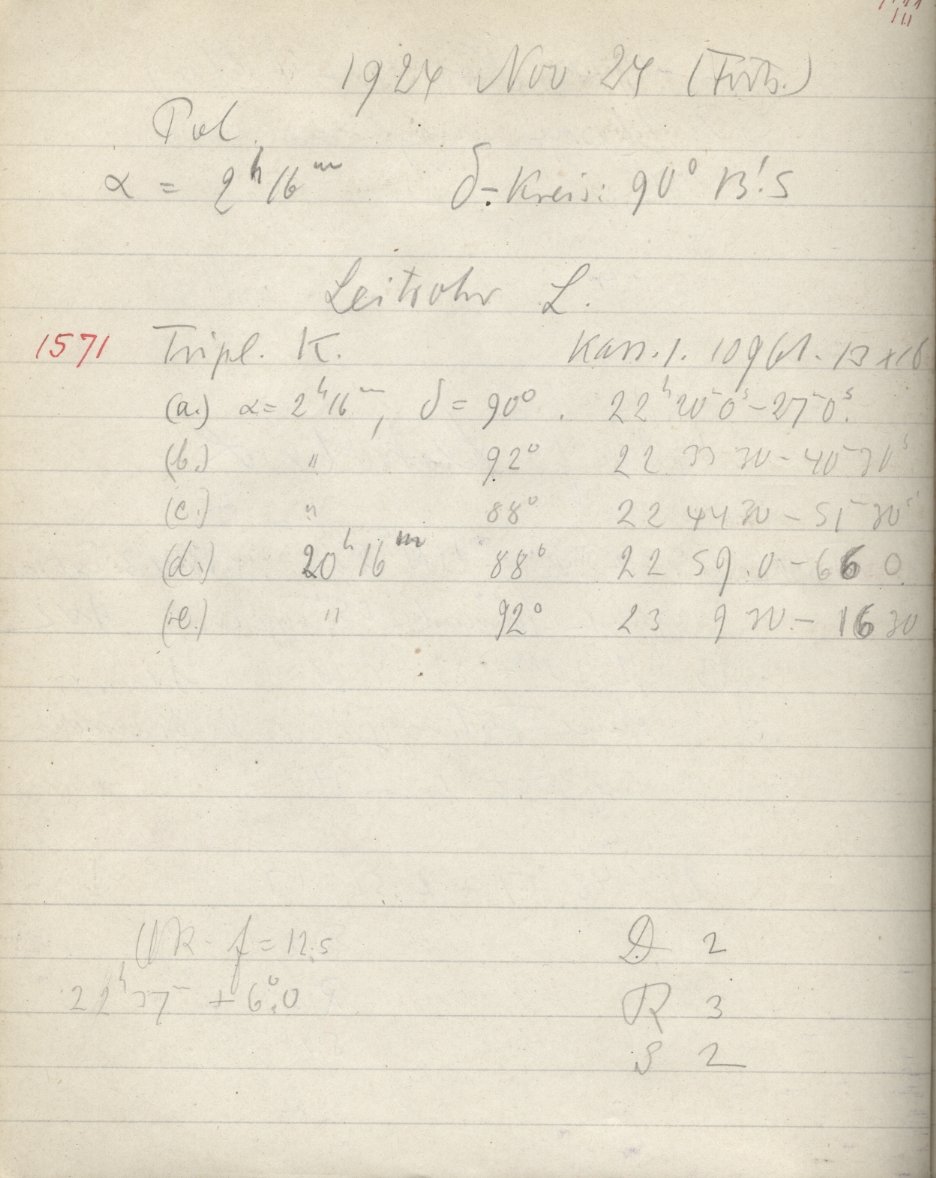 1924 Nov 24 (Forts.)
Pol.
α = 2ʰ 16ᵐ δ-Kreis: 90° 13!5
Leitrohr L.
1571 Tripl. K. Kass. 1. 10 9 61. 13 x 18
(a.) α = 2ʰ 16ᵐ, δ = 90°. 22ʰ 20ᵐ 0ˢ – 27ᵐ 0ˢ.
(b.) " 92° 22 33 30 – 40ᵐ 30ˢ
(c.) " 88° 22 44 30 – 51ᵐ 30ˢ
(d.) 20ʰ 16ᵐ 88° 22 59.0 – 66 0
(e.) " 92° 23 9 30 – 16 30
UR f = 12.5 D 2
22ʰ 37ᵐ + 6°.0 R 3
S 2